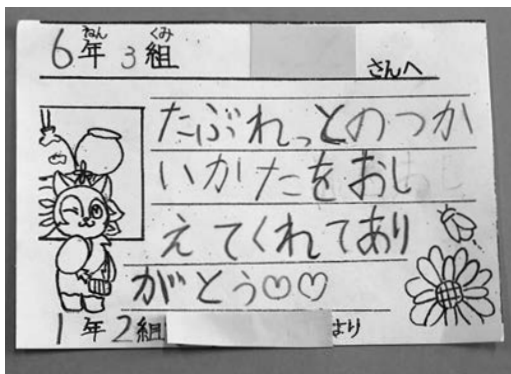 6年3組
さんへ
たぶれっとのつか
いかたをおし
えてくれてあり
がとう♡♡
1年2組 より